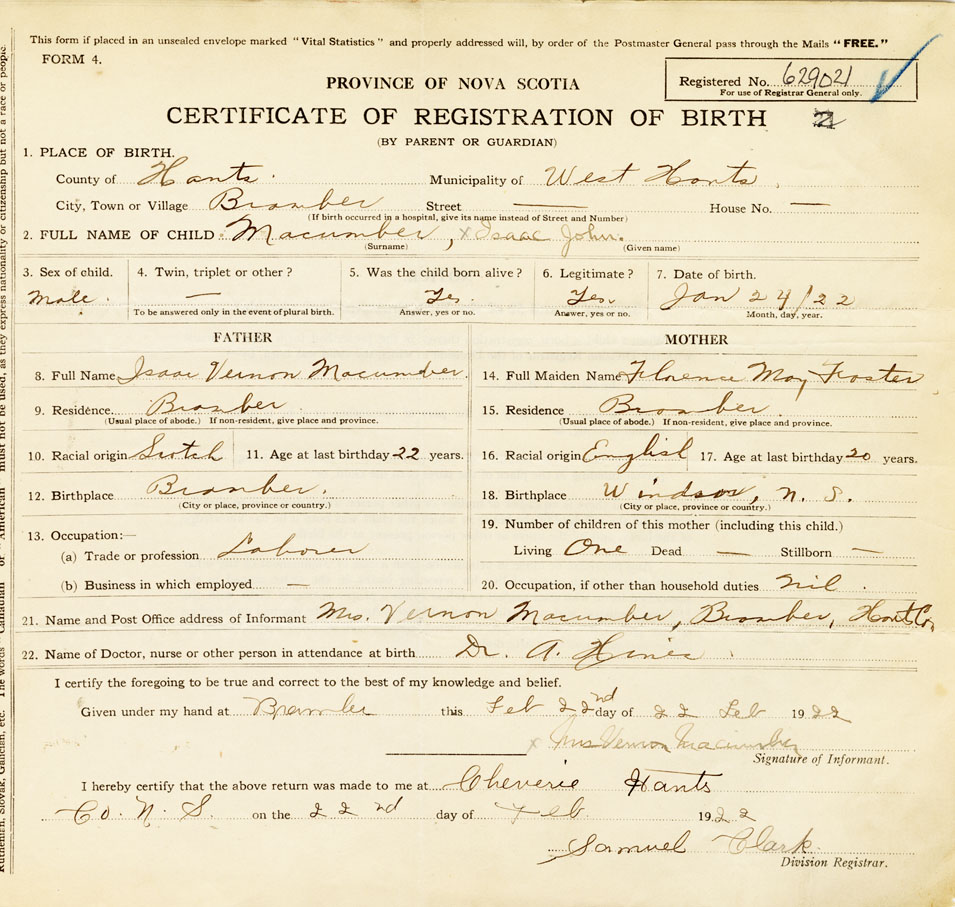 This form if placed in an unsealed envelope marked "Vital Statistics" and properly addressed will, by order of the Postmaster General pass through the Mails "FREE."
FORM 4.
PROVINCE OF NOVA SCOTIA
Registered No. 629021
For use of Registrar General only.
CERTIFICATE OF REGISTRATION OF BIRTH
(BY PARENT OR GUARDIAN)
1. PLACE OF BIRTH.
County of Hants. Municipality of West Hants
City, Town or Village Bramber Street — House No. —
(If birth occurred in a hospital, give its name instead of Street and Number)
2. FULL NAME OF CHILD Macumber, x Isaac John.
(Surname) (Given name)
3. Sex of child. 4. Twin, triplet or other? 5. Was the child born alive? 6. Legitimate? 7. Date of birth.
Male. — Yes. Yes. Jan 24/22
To be answered only in the event of plural birth. Answer, yes or no. Answer, yes or no. Month, day, year.
FATHER MOTHER
8. Full Name Isaac Vernon Macumber. 14. Full Maiden Name Florence May Froster
9. Residence Bramber 15. Residence Bramber
(Usual place of abode.) If non-resident, give place and province. (Usual place of abode.) If non-resident, give place and province.
10. Racial origin Scotch 11. Age at last birthday 22 years. 16. Racial origin English 17. Age at last birthday 20 years.
12. Birthplace Bramber. 18. Birthplace Windsor, N. S.
(City or place, province or country.) (City or place, province or country.)
13. Occupation:— 19. Number of children of this mother (including this child.)
(a) Trade or profession Laborer Living One Dead — Stillborn —
(b) Business in which employed — 20. Occupation, if other than household duties nil.
21. Name and Post Office address of Informant Mrs. Vernon Macumber, Bramber, Hants Co,
22. Name of Doctor, nurse or other person in attendance at birth Dr. A.
I certify the foregoing to be true and correct to the best of my knowledge and belief.
Given under my hand at Bramber this Feb 22nd day of 22 Feb 1922
x Mrs Vernon Macumber
Signature of Informant.
I hereby certify that the above return was made to me at Cheverie Hants
Co. N. S. on the 22nd day of Feb 1922
Samuel Clark.
Division Registrar.
Ruthenian, Slovak, Galician, etc. The words "Canadian" or "American" must not be used, as they express nationality or citizenship but not a race or people.